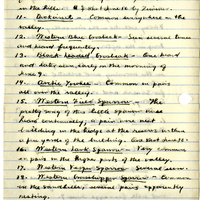 on the hill
11. Bobwhite - Common everywhere in the
valley.
12. Western Blue Grosbeak - Saw several times
and heard frequently.
13. Black-headed Grosbeak - One heard
and later seen early in the morning of
June 9.
14. Arctic Towhee - Common in pairs
all over hill.
15. Western Field Sparrow - The
pretty song of this little sparrow was
heard continually, a pair were nest
building in the hedge at the rear
a few yards of the building.
16. Western Lark Sparrow - Very common
in pairs in the higher parts of the valley.
17. Western Vesper Sparrow - Several seen.
18. Western Grasshopper Sparrow - Common
in the sandhills, several pairs apparently
nesting.